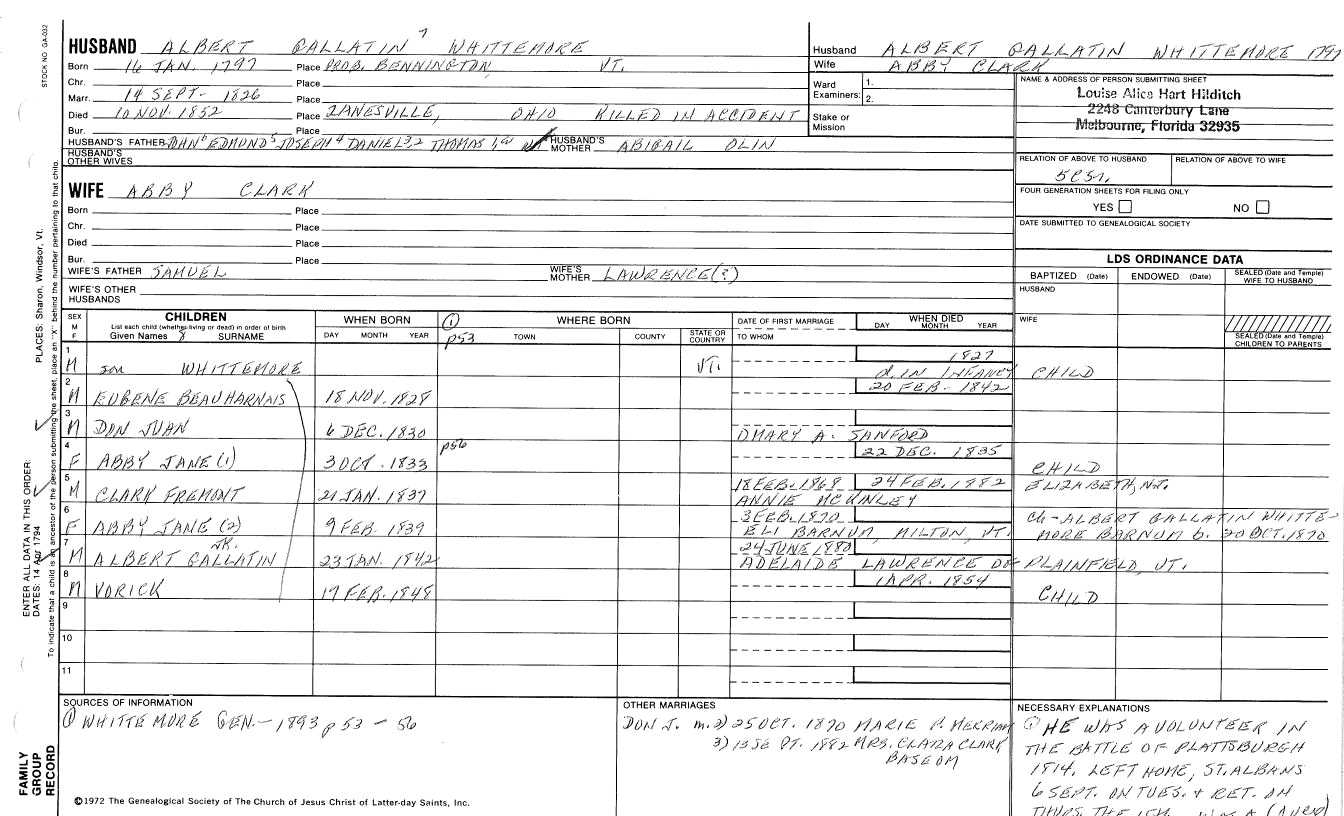 STOCK NO GA-032
7
HUSBAND ALBERT GALLATIN WHITTEMORE
Husband ALBERT GALLATIN WHITTEMORE 1797
Born 16 JAN. 1797 Place PROB. BENNINGTON, VT.
Wife ABBY CLARK
Chr. Place
Ward Examiners: 1. 2.
NAME & ADDRESS OF PERSON SUBMITTING SHEET
Louise Alice Hart Hilditch
2248 Canterbury Lane
Melbourne, Florida 32935
Marr. 14 SEPT. 1826 Place
Died 10 NOV. 1852 Place ZANESVILLE, OHIO KILLED IN ACCIDENT
Stake or Mission
Bur. Place
HUSBAND'S FATHER JOHN 6 EDMUND 5 JOSEPH 4 DANIEL 3,2 THOMAS 1,
HUSBAND'S MOTHER ABIGAIL OLIN
HUSBAND'S OTHER WIVES
RELATION OF ABOVE TO HUSBAND RELATION OF ABOVE TO WIFE
WIFE ABBY CLARK
FOUR GENERATION SHEETS FOR FILING ONLY
YES NO
Born Place
Chr. Place
DATE SUBMITTED TO GENEALOGICAL SOCIETY
Died Place
Bur. Place
LDS ORDINANCE DATA
WIFE'S FATHER SAMUEL
WIFE'S MOTHER LAWRENCE(?)
BAPTIZED (Date) ENDOWED (Date) SEALED (Date and Temple) WIFE TO HUSBAND
WIFE'S OTHER HUSBANDS
HUSBAND
SEX M F
CHILDREN
List each child (whether living or dead) in order of birth
Given Names & SURNAME
WHEN BORN
DAY MONTH YEAR
① p53
WHERE BORN
TOWN COUNTY STATE OR COUNTRY
DATE OF FIRST MARRIAGE
TO WHOM
WHEN DIED
DAY MONTH YEAR
WIFE
SEALED (Date and Temple) CHILDREN TO PARENTS
1 M son WHITTEMORE VT. 1827 d. IN INFANCY CHILD
2 M EUGENE BEAUHARNAIS 18 NOV. 1828 20 FEB. 1842
3 M DON JUAN 6 DEC. 1830 p56 1) MARY A. SANFORD
4 F ABBY JANE (1) 3 OCT. 1833 22 DEC. 1835 CHILD
5 M CLARK FREMONT 21 JAN. 1837 18 FEB. 1868 ANNIE MCKINLEY 24 FEB. 1882 ELIZABETH, N.J.
6 F ABBY JANE (2) 9 FEB. 1839 3 FEB. 1870 ELI BARNUM, MILTON, VT. CH-ALBERT GALLATIN WHITTE-
MORE BARNUM b. 20 OCT. 1870
7 M ALBERT GALLATIN JR. 23 JAN. 1842 24 JUNE 1880 ADELAIDE LAWRENCE OF PLAINFIELD, VT.
8 M VORICK 17 FEB. 1848 1 APR. 1854 CHILD
9
10
11
SOURCES OF INFORMATION
① WHITTEMORE GEN. - 1893 p 53 - 56
OTHER MARRIAGES
DON J. m. 2) 25 OCT. 1870 MARIE P. MERRIAM
3) 13 SEPT. 1882 MRS. CLARA CLARK
BASCOM
NECESSARY EXPLANATIONS
① HE WAS A VOLUNTEER IN
THE BATTLE OF PLATTSBURGH
1814. LEFT HOME, ST. ALBANS
6 SEPT. ON TUES. & RET. ON
©1972 The Genealogical Society of The Church of Jesus Christ of Latter-day Saints, Inc.
FAMILY GROUP RECORD
ENTER ALL DATA IN THIS ORDER:
DATES: 14 Apr 1794
PLACES: Sharon, Windsor, Vt.
To indicate that a child is an ancestor of the person submitting the sheet, place an "X" behind the number pertaining to that child.